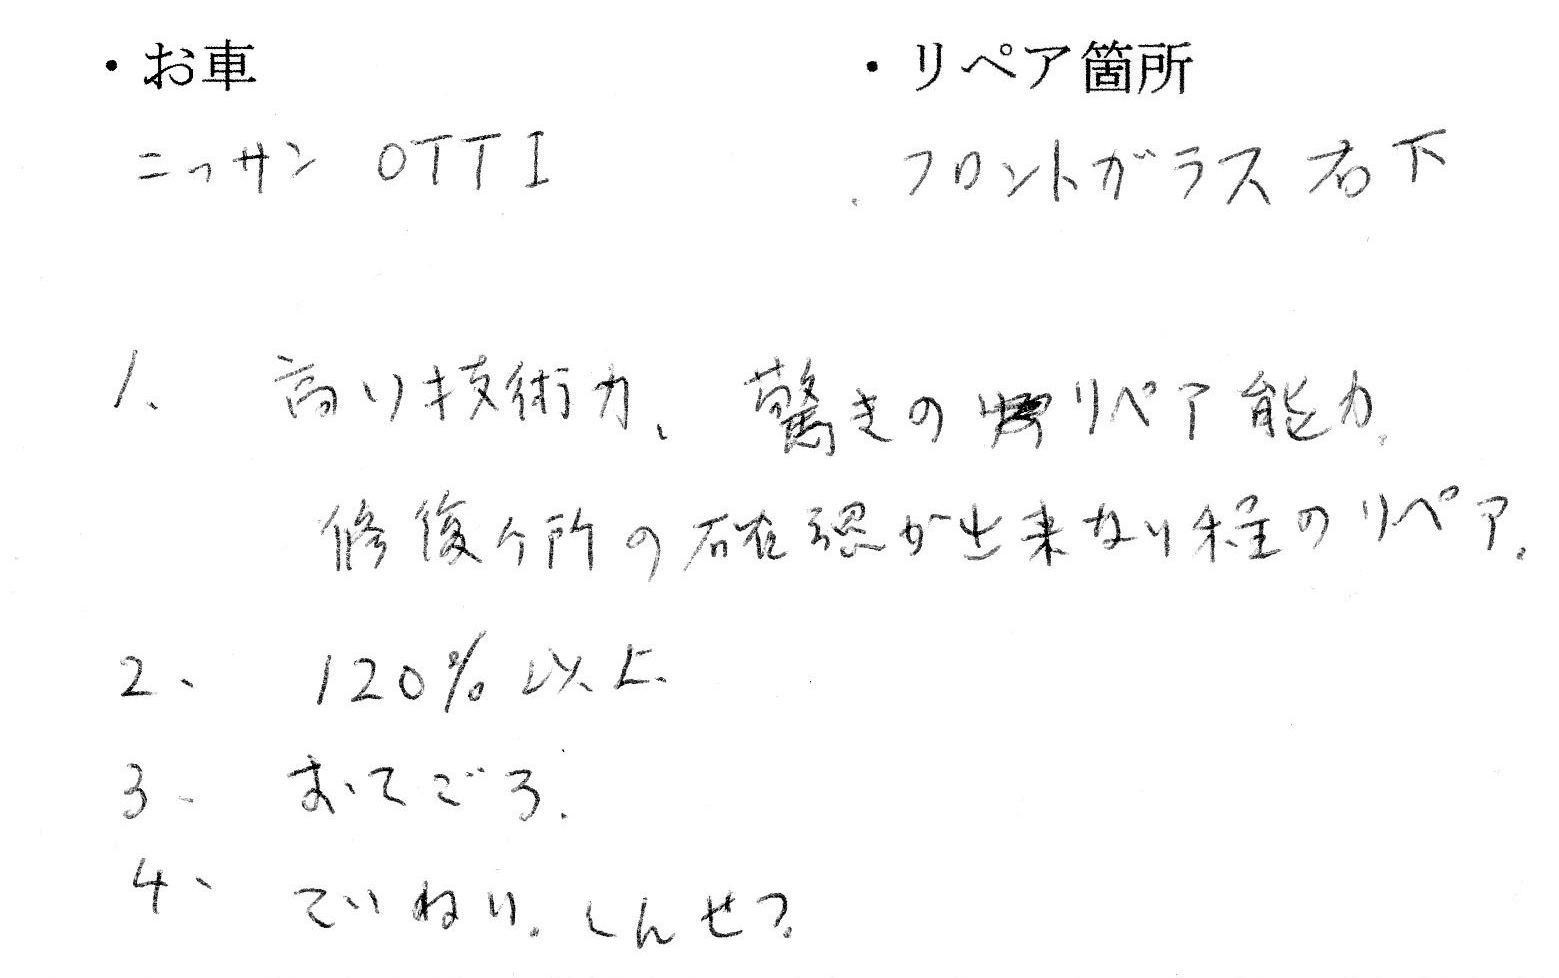 ・お車
・リペア箇所
ニッサン OTTI
フロントガラス右下
1、 高い技術力、驚きのリペア能力。
修復ヶ所の確認が出来ない程のリペア。
2、 120%以上
3、 おてごろ.
4、 ていねい。しんせつ。